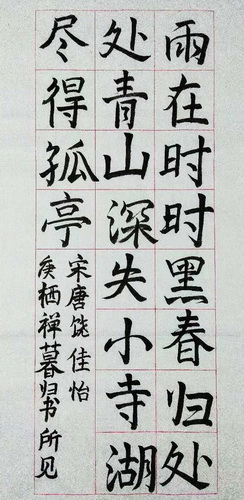 雨在时时黑春归处
处青山深失小寺湖
尽得孤亭
宋唐饶佳怡
庚栖禅暮归书所见